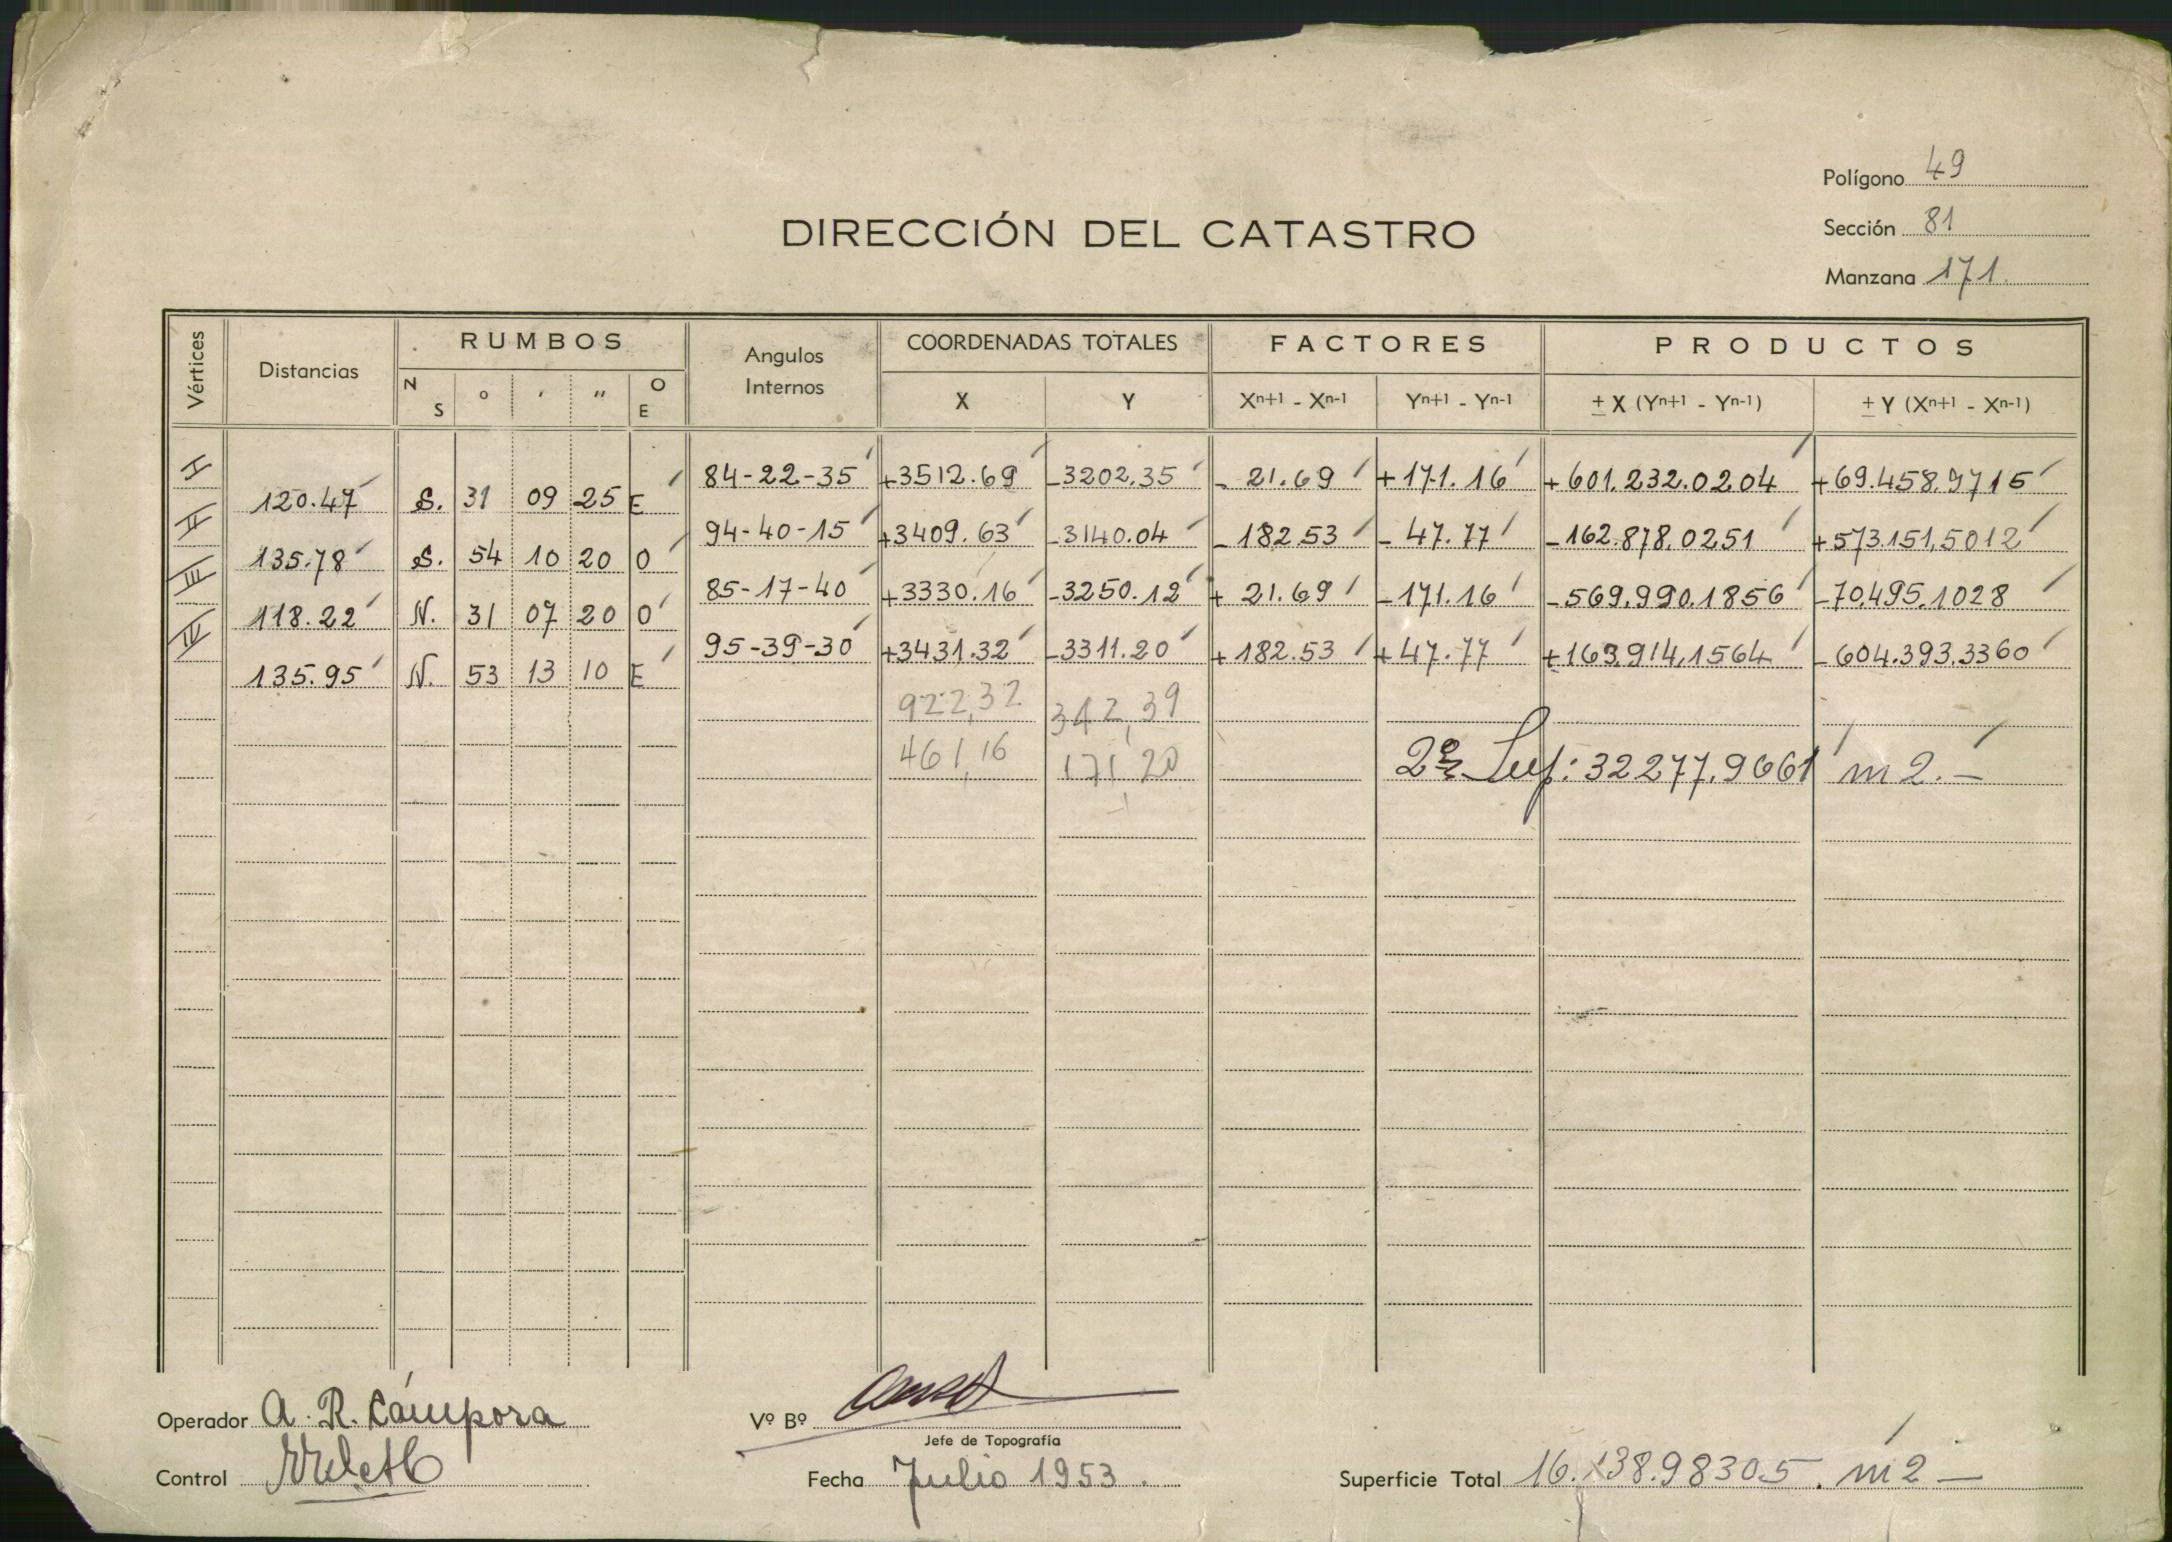 Polígono 49
DIRECCIÓN DEL CATASTRO
Sección 81
Manzana 171.
Vértices Distancias RUMBOS Angulos Internos COORDENADAS TOTALES FACTORES PRODUCTOS
N S ° ' " O E X Y Xn+1 - Xn-1 Yn+1 - Yn-1 ± X (Yn+1 - Yn-1) ± Y (Xn+1 - Xn-1)
I 84-22-35 +3512.69 -3202,35 - 21.69 +171.16 +601.232.0204 +69.458.9715
120.47 S. 31 09 25 E
II 94-40-15 +3409.63 -3140.04 -182.53 - 47.77 -162.878.0251 +573.151,5012
135.78 S. 54 10 20 O
III 85-17-40 +3330.16 -3250.12 + 21.69 -171.16 -569.990.1856 -70.495.1028
118.22 N. 31 07 20 O
IV 95-39-30 +3431.32 -3311.20 +182.53 +47.77 +163.914,1564 -604.393.3360
135.95 N. 53 13 10 E
922,32 342,39
461,16 171,20
Sup: 32277.9661 m2.-
Operador A. R. Cámpora
Vº Bº
Jefe de Topografía
Control
Fecha Julio 1953.
Superficie Total 16.138.98305. m2 -